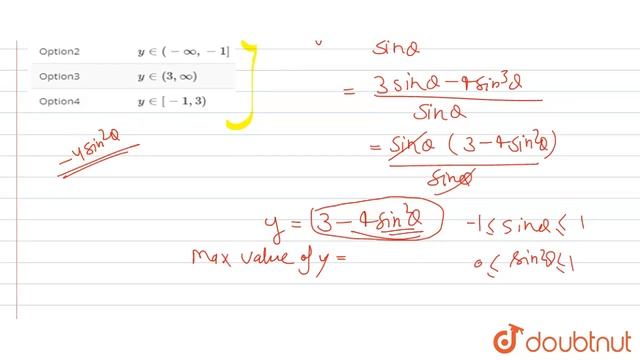 Option2 y ∈ (−∞, −1]
Option3 y ∈ (3, ∞)
Option4 y ∈ [−1, 3)
−4sin²θ
sinθ
= 3sinθ−4sin³θ
sinθ
= sinθ (3−4sin²θ)
sinθ
y = 3−4sin²θ −1≤ sinθ ≤ 1
Max value of y = 0≤ sin²θ ≤1
doubtnut